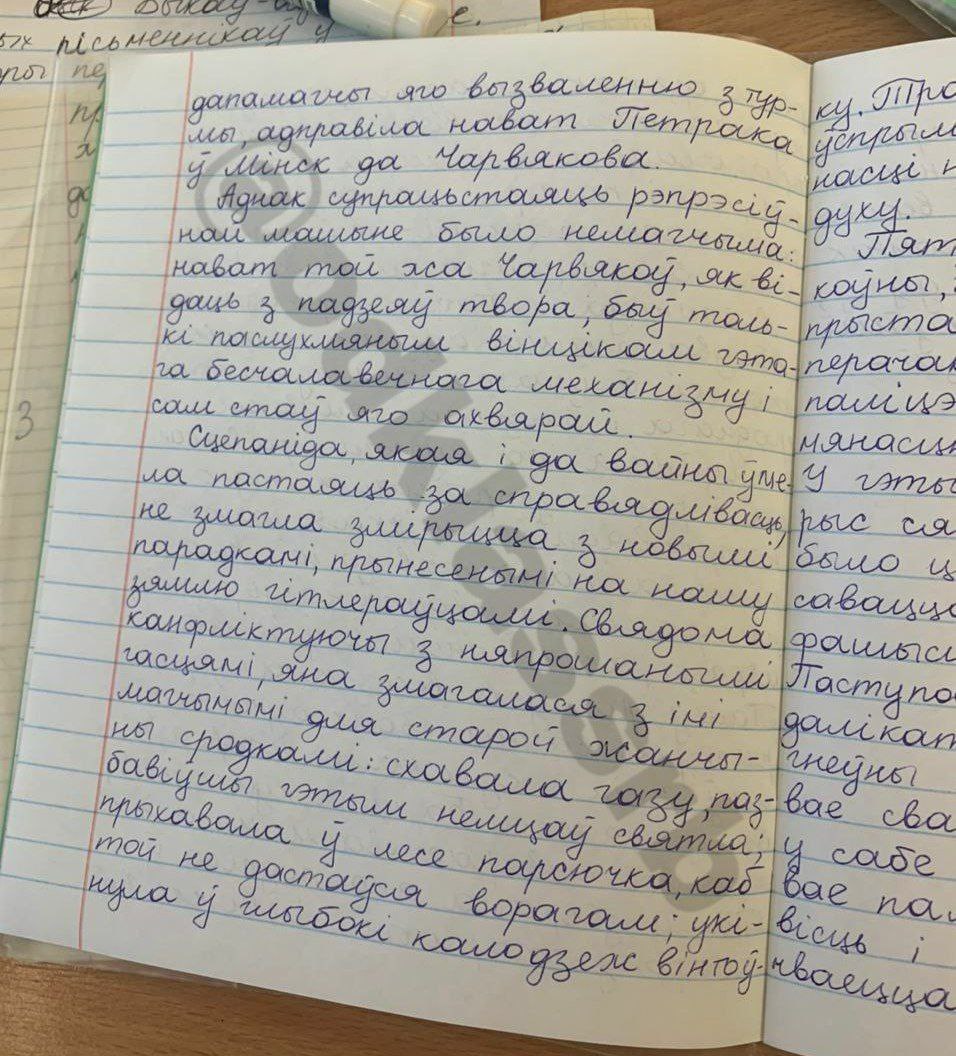 Быкаў
е.
пісьменнікаў у
пе
дапамагчы яго вызваленню з тур-
мы, адправіла нават Петрака
ў Мінск да Чарвякова.
Аднак супрацьстаяць рэпрэсіў-
най машыне было немагчыма:
нават той жа Чарвякоў, як ві-
даць з падзеяў твора, быў толь-
кі паслухмяным вінцікам гэта-
га бесчалавечнага механізму і
сам стаў яго ахвярай.
Сцепаніда, якая і да вайны ўме-
ла пастаяць за справядлівасць,
не змагла змірыцца з новымі
парадкамі, прынесенымі на нашу
зямлю гітлераўцамі. Свядома
канфліктуючы з няпрошанымі
гасцямі, яна змагалася з імі
магчымымі для старой жанчы-
ны сродкамі: схавала газу, паз-
бавіўшы гэтым немцаў святла;
прыхавала ў лесе парсючка, каб
той не дастаўся ворагам; укі-
нула ў глыбокі калодзеж вінтоў-
ку. Тра
ўспрым
насці н
духу.
Пят
коўны,
прыста
перачак
паліцэ
мянасц
У гэты
рыс ся
было ц
савацца
фашыс
Паступо
далікат
гнеўны
вае сва
у сабе
вае пал
вісць і
чваецца
3
@odklassrb